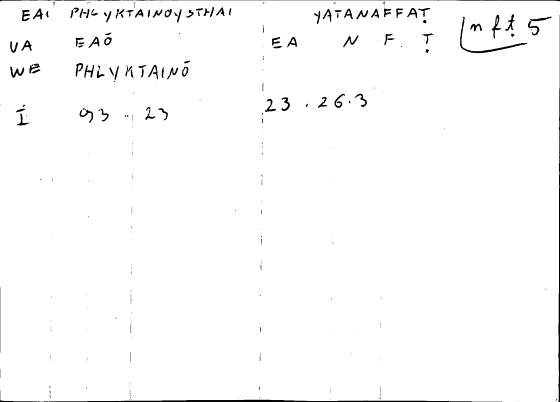 EAI PHLYKTAINOYSTHAI YATANAFFAṬ nfṭ 5
VA EAŌ EA N F. Ṭ
WE PHLYKTAINŌ
Ī 93 . 23 23 . 26.3